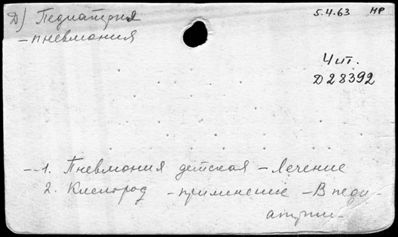 Д) Педиатрия 5.4.63 НР
– пневмония
Чит.
Д28392
– 1. Пневмония детская – Лечение
2. Кислород – применение – В педи-
атрии.